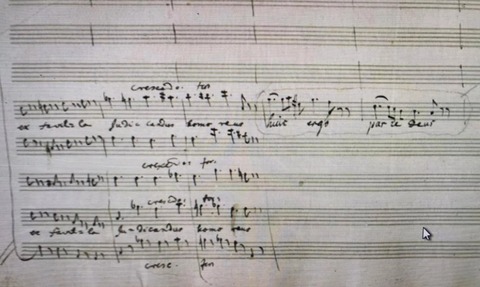 crescendo: for
ex favilla judicandus homo reus huic ergo parce Deus
crescdo: for.
crescdo: for:
ex favilla judicandus homo reus
cresc. for